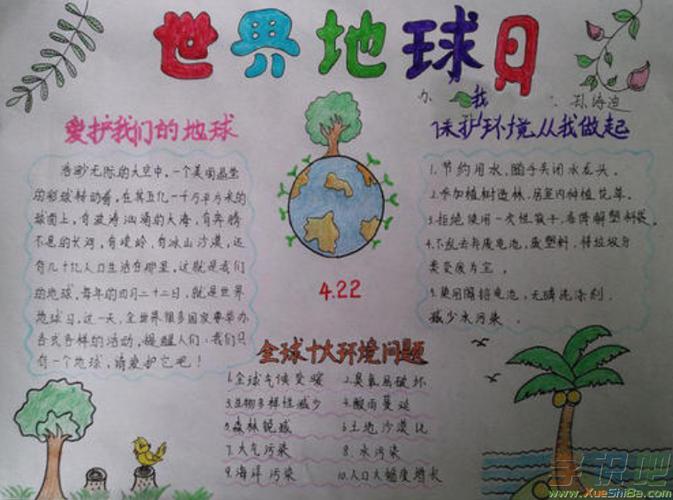 世界地球日
办 我 孙诗迪
爱护我们的地球
浩渺无际的太空中，一个美丽晶莹
的彩球转动着，在其五亿一千万平方米的
球面上，有波涛汹涌的大海，有奔腾
不息的长河，有峻岭，有冰山沙漠，还
有几十亿人口生活在那里，这就是我们
的地球，每年的四月二十二日，就是世界
地球日，这一天，全世界很多国家要举办
各式各样的活动，提醒人们：我们只
有一个地球，请爱护它吧！
4.22
保护环境从我做起
1.节约用水，随手关闭水龙头。
2.参加植树造林，居室内种植花草。
3.拒绝使用一次性筷子，难降解塑料袋。
4.不乱丢弃废电池，废塑料，将垃圾分
类变废为宝。
5.使用镉铅电池，无磷洗涤剂，
减少水污染。
全球十大环境问题
1.全球气候变暖 2.臭氧层破坏
3.生物多样性减少 4.酸雨蔓延
5.森林锐减 6.土地沙漠化
7.大气污染 8.水污染
9.海洋污染 10.人口大幅度增长
学识吧
www.XueShiBa.com